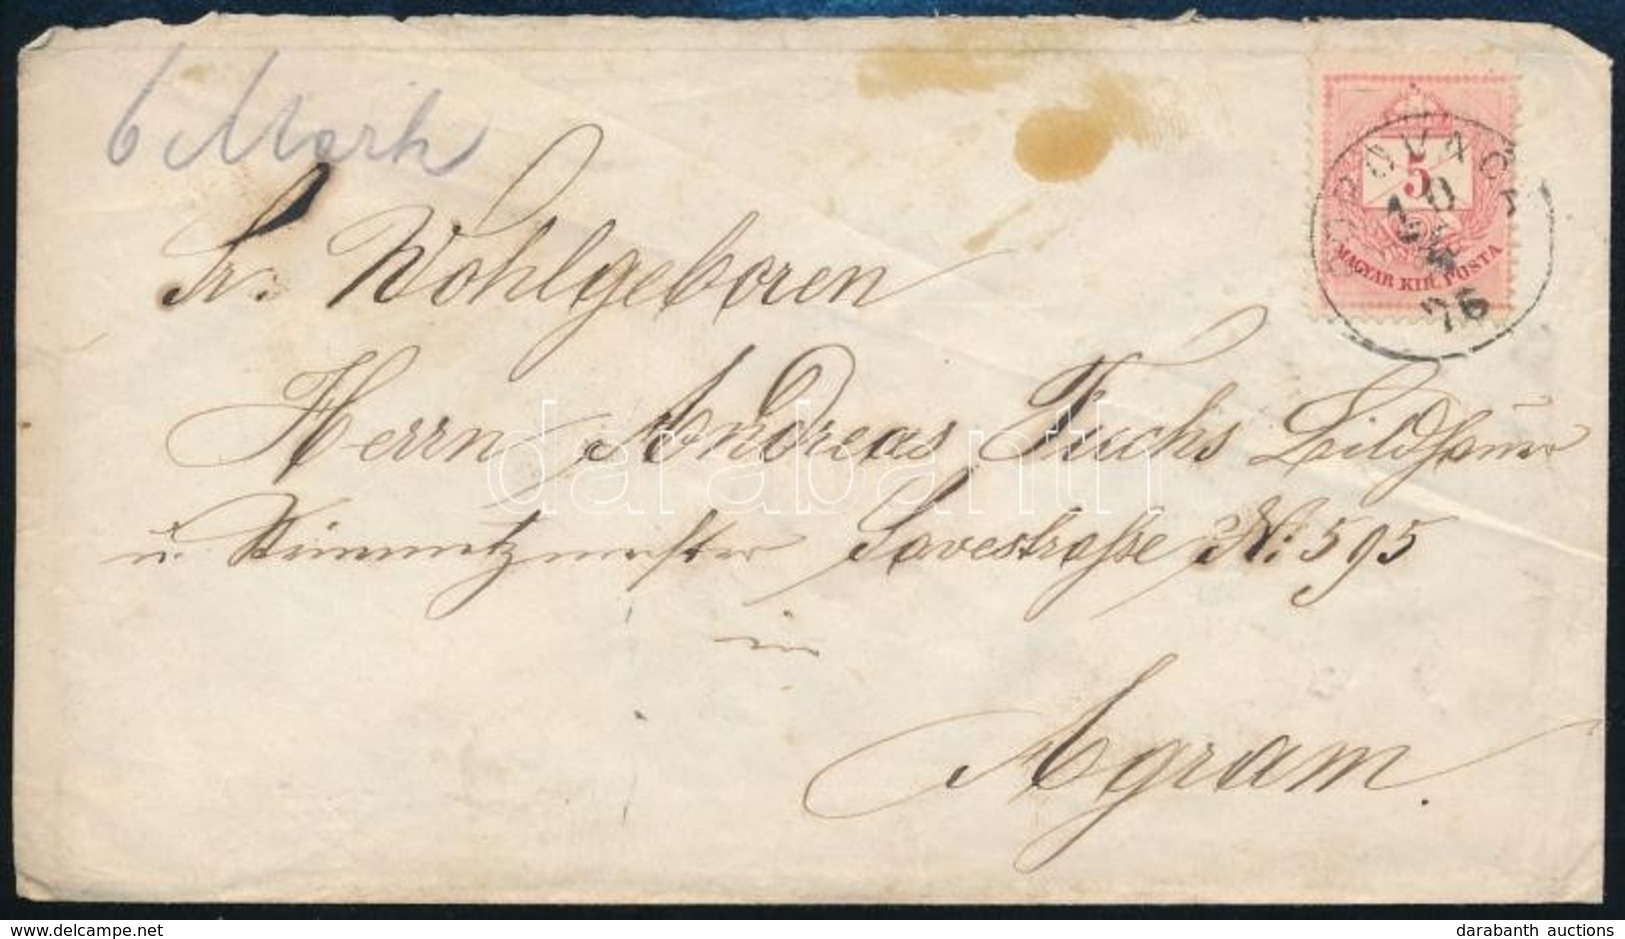 6 Mark
Sr. Wohlgeboren
Herrn Andreas Fuchs Bildhauer
u. Steinmetzmeister Savestraße No: 595
in
Agram.
5
MAGYAR KIR. POSTA
76
darabanth
delcampe.net
darabanth auctions